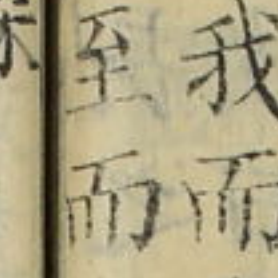 我而
至而